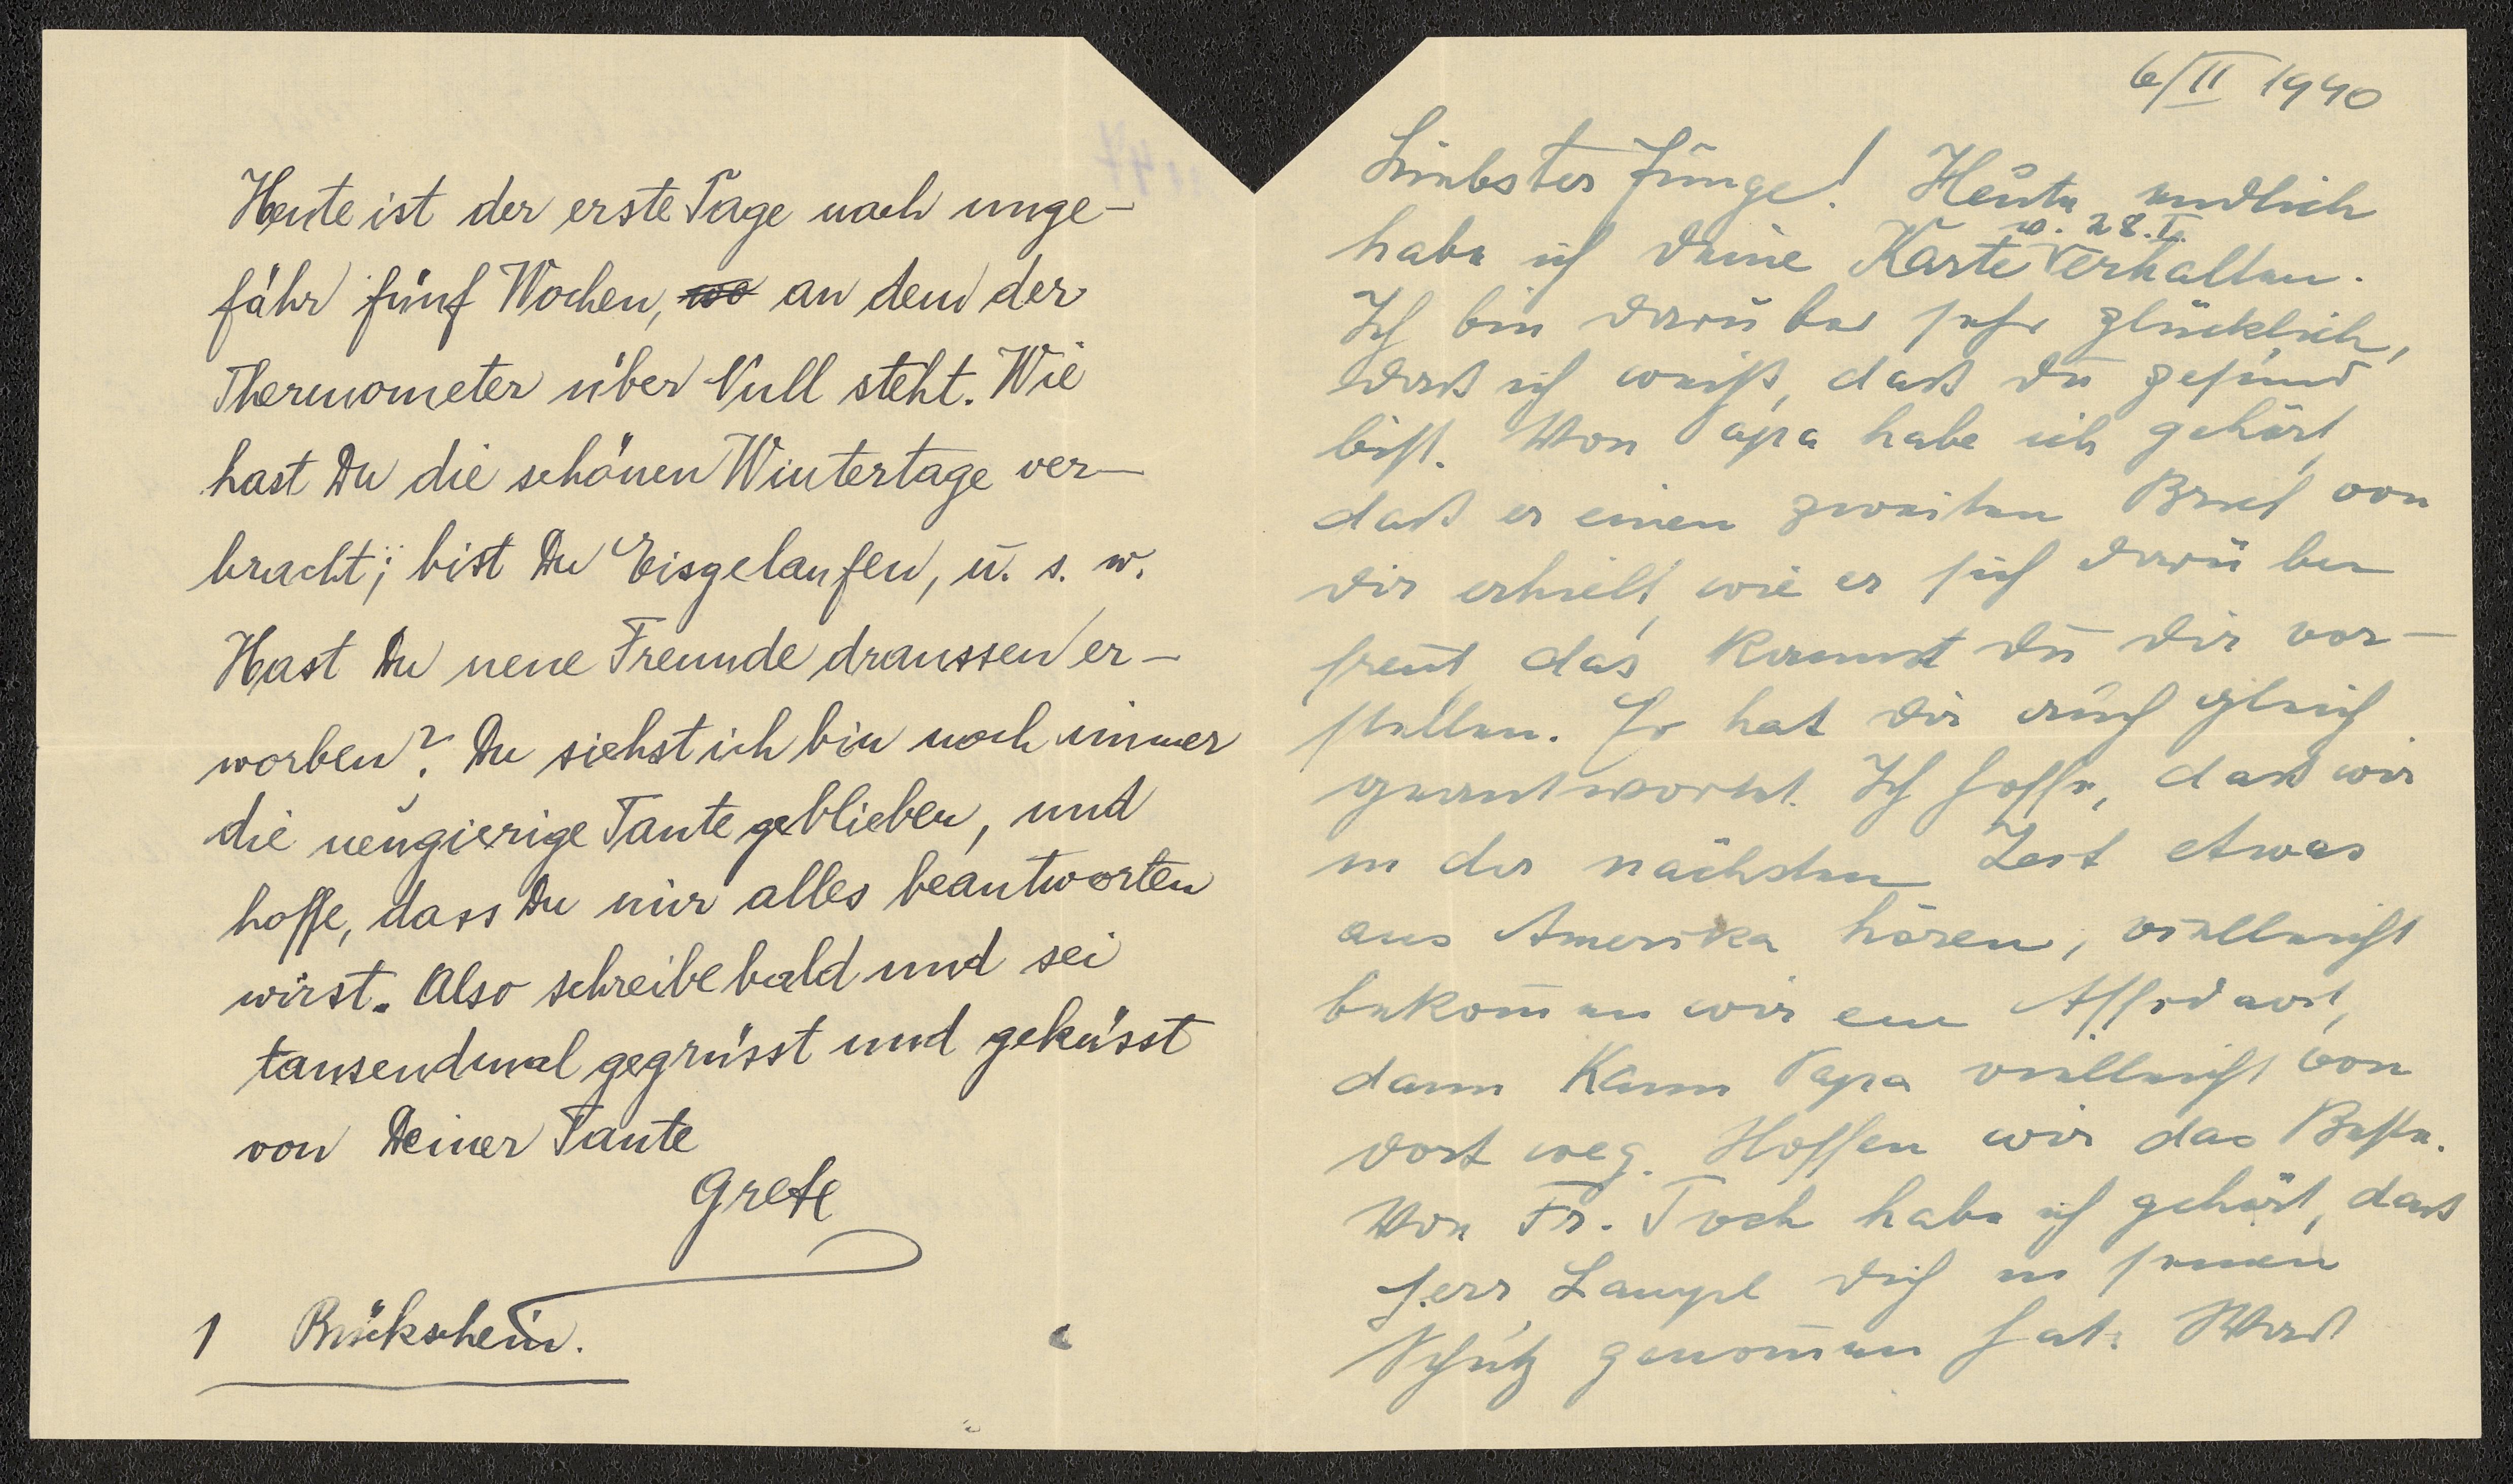 Heute ist der erste Tage nach unge-
fähr fünf Wochen, wo an dem der
Thermometer über Null steht. Wie
hast Du die schönen Wintertage ver-
bracht; bist Du Eisgelaufen, u. s. w.
Hast Du neue Freunde draussen er-
worben? Du siehst ich bin noch immer
die neugierige Tante geblieben, und
hoffe, dass Du mir alles beantworten
wirst. Also schreibe bald und sei
tausendmal gegrüsst und geküsst
von Deiner Tante
Grete
1 Rückschein.
6/II 1940
Liebster Junge! Heute endlich
v. 28. I.
habe ich deine Karte erhalten.
Ich bin darüber sehr glücklich,
daß ich weiß, daß du gesund
bist. Von Papa habe ich gehört,
daß er einen zweiten Brief von
dir erhielt, wie er sich darüber
freut, das kannst du dir vor-
stellen. Er hat dir auch gleich
geantwortet. Ich hoffe, daß wir
in der nächsten Zeit etwas
aus Amerika hören, vielleicht
bekom̄en wir ein Affidavit,
dann kann Papa vielleicht von
dort weg. Hoffen wir das Beste.
Von Fr. Toch habe ich gehört, daß
Herr Lampl dich in seinen
Schutz genom̄en hat. Was